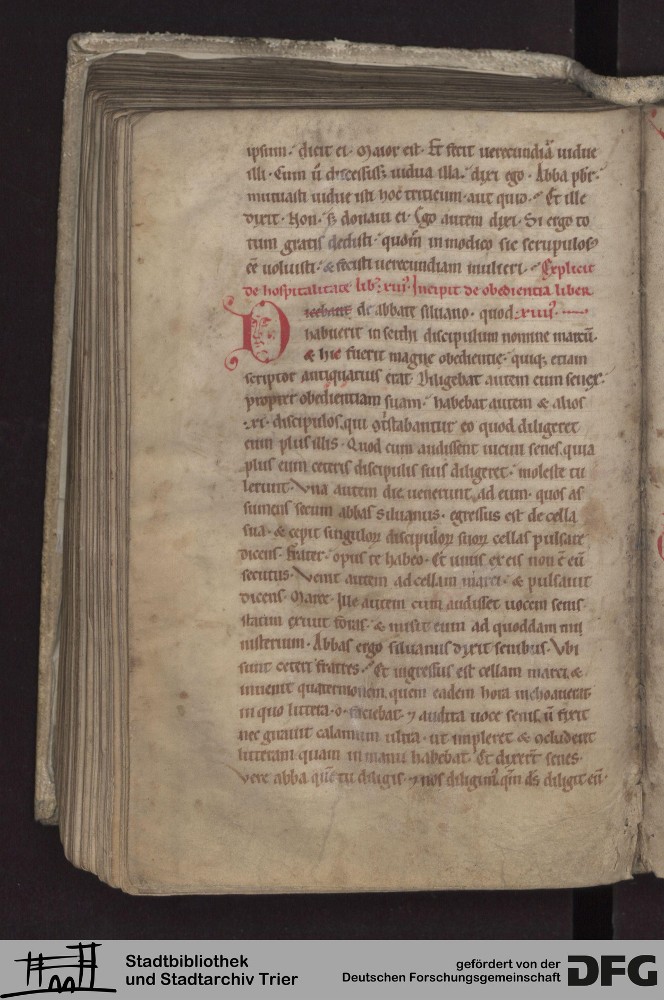 ipsum· dicit ei· Maior est· Et fecit uerecundiā uidue
illi· Cum ū discessiss; uidua illa· dixi ego· Abba pbr̄·
mutuasti uidue isti hoc triticum· aut quid· Et ille
dixit· Non· s; donaui ei· Ego autem dixi· Si ergo to
tum gratis dedisti· quom̄ in modico sic scrupulos᷒
eē uoluisti· & fecisti uerecundiam mulieri· Explicit
de hospitalitate lib᷒· xiii᷒· Incipit de obedientia liber
Dicebant de abbate siluano· quod ·xiiii᷒·
habuerit in scithi discipulum nomine marcū·
& hic fuerit magne obedientie· quiq; etiam
scriptor antiquarius erat· Diligebat autem eum senex·
propter obedientiam suam· habebat autem & alios
·xi· discipulos, qui ꝯtristabantur eo quod diligeret
eum plus illis· Quod cum audissent uicini senes, quia
plus eum ceteris discipulis suis diligeret· moleste tu
lerunt· Vna autem die uenerunt ad eum· quos as
sumens secum abbas siluanus· egressus est de cella
sua· & cepit singuloꝝ discipuloꝝ suoꝝ cellas pulsare
dicens· Frater· opus te habeo· Et unus ex eis non ē eū
secutus· Venit autem ad cellam marci· & pulsauit
dicens· Marce· Ille autem cum audisset uocem senis
statim exiuit foras· & misit eum ad quoddam mi
nisterium· Abbas ergo siluanus dixit senibus· Vbi
sunt ceteri fratres· Et ingressus est cellam marci, &
inuenit quaternionem, quem eadem hora inchoauerat·
in quo littera ·o· faciebat· ⁊ audita uoce senis, ū fixit
nec girauit calamum ultra· ut impleret & ꝯcluderet
litteram quam in manu habebat· Et dixerr̄t senes·
Vere abba quē tu diligis· ⁊ nos diligim᷒· qm̄ ds̄ diligit eū·
Stadtbibliothek
und Stadtarchiv Trier
gefördert von der
Deutschen Forschungsgemeinschaft
DFG